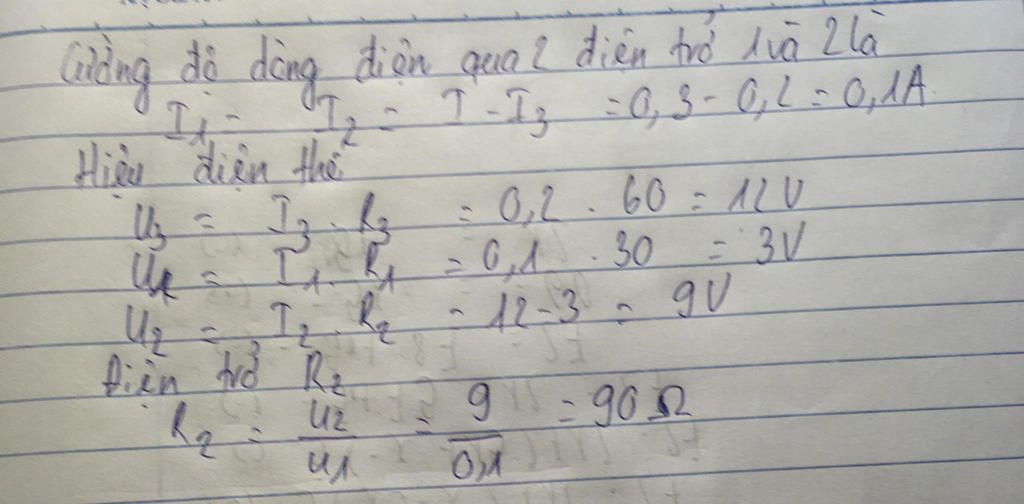 Cường độ dòng điện qua 2 điện trở 1 và 2 là
I₁ = I₂ = I - I₃ = 0,3 - 0,2 = 0,1A
Hiệu điện thế
U₃ = I₃ . R₃ = 0,2 . 60 = 12V
U₁ = I₁ . R₁ = 0,1 . 30 = 3V
U₂ = I₂ . R₂ = 12 - 3 = 9V
Điện trở R₂
R₂ = U₂ / U₁ = 9 / 0,1 = 90 Ω